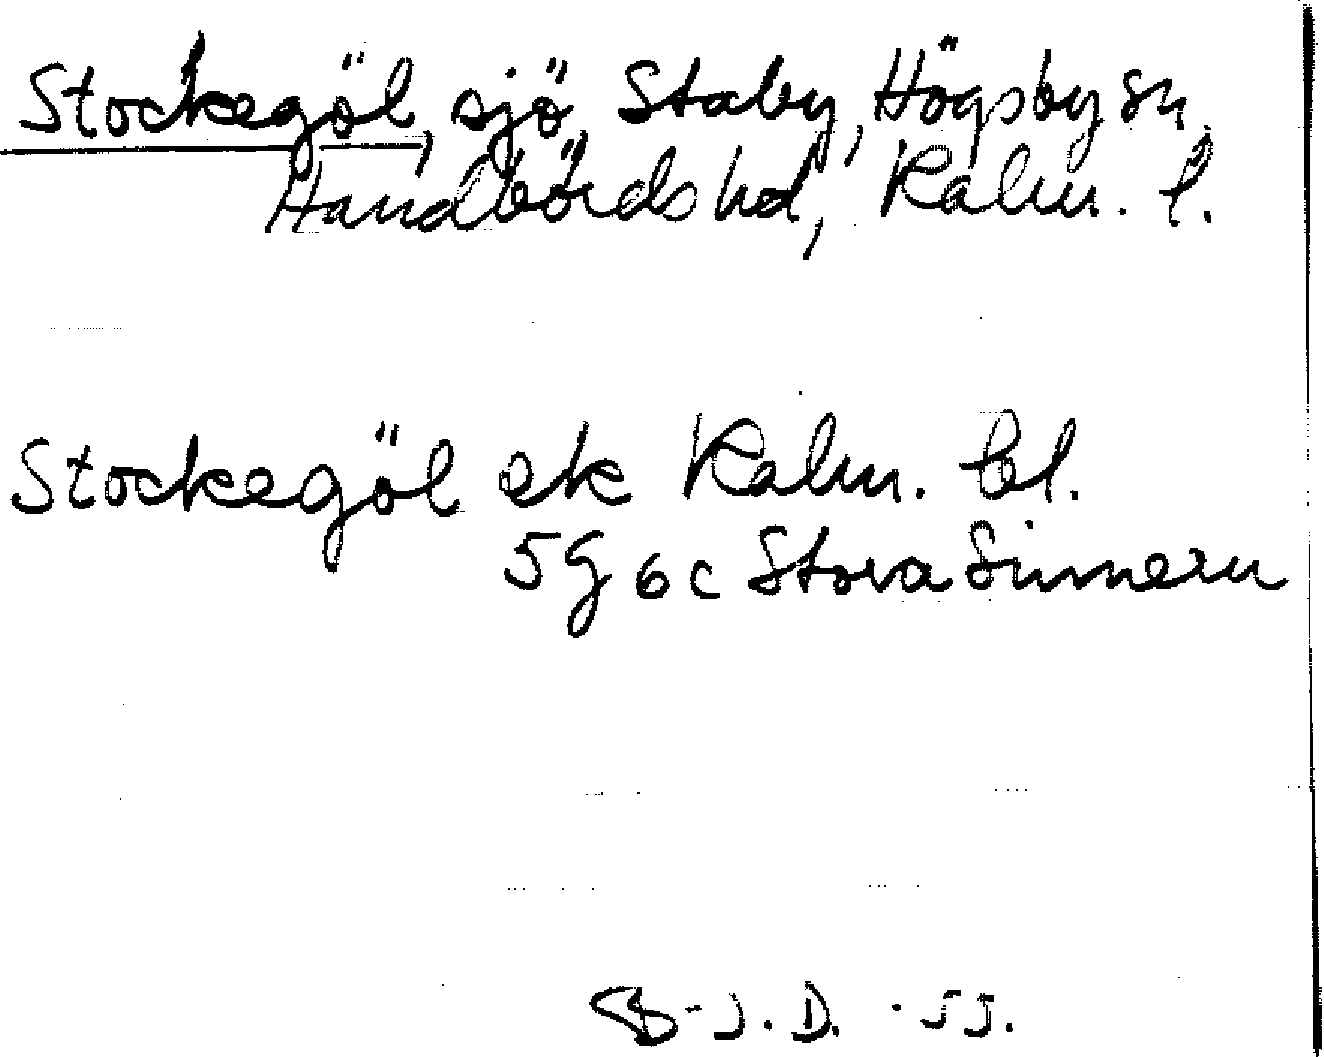 Stockegöl, sjö, Staby, Högsby sn,
Handbörds hd, Kalm. l.
Stockegöl ek Kalm. bl.
5G 6c Stora Sinnern
B-J.D. -55.